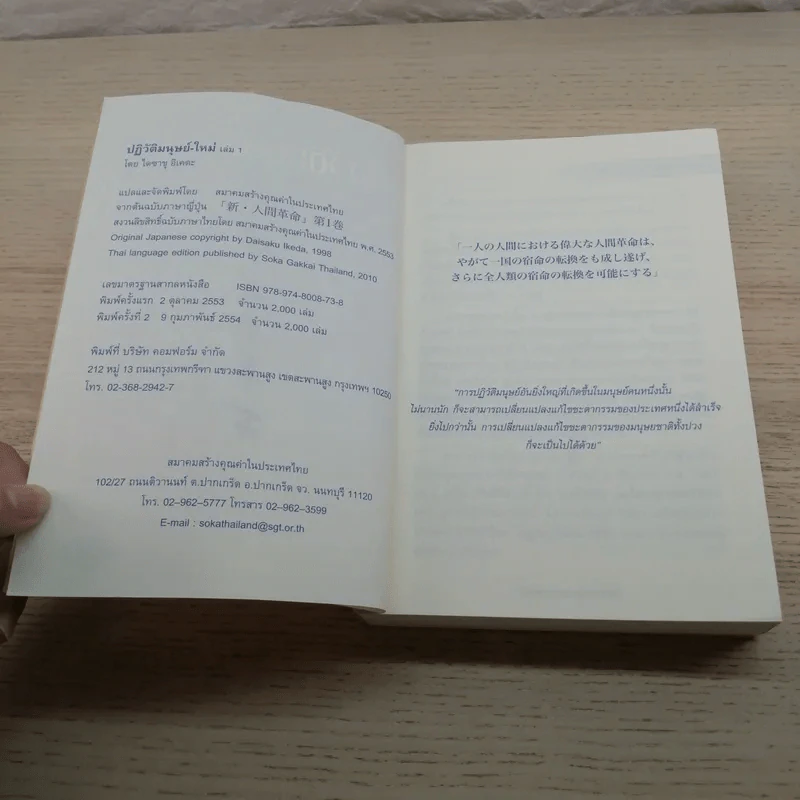 ปฏิวัติมนุษย์-ใหม่ เล่ม 1
โดย ไดซาขุ อิเคดะ
แปลและจัดพิมพ์โดย สมาคมสร้างคุณค่าในประเทศไทย
จากต้นฉบับภาษาญี่ปุ่น 「新・人間革命」第1巻
สงวนลิขสิทธิ์ฉบับภาษาไทยโดย สมาคมสร้างคุณค่าในประเทศไทย พ.ศ. 2553
Original Japanese copyright by Daisaku Ikeda, 1998
Thai language edition published by Soka Gakkai Thailand, 2010
เลขมาตรฐานสากลหนังสือ ISBN 978-974-8008-73-8
พิมพ์ครั้งแรก 2 ตุลาคม 2553 จำนวน 2,000 เล่ม
พิมพ์ครั้งที่ 2 9 กุมภาพันธ์ 2554 จำนวน 2,000 เล่ม
พิมพ์ที่ บริษัท คอมฟอร์ม จำกัด
212 หมู่ 13 ถนนกรุงเทพกรีฑา แขวงสะพานสูง เขตสะพานสูง กรุงเทพฯ 10250
โทร. 02-368-2942-7
สมาคมสร้างคุณค่าในประเทศไทย
102/27 ถนนติวานนท์ ต.ปากเกร็ด อ.ปากเกร็ด จว. นนทบุรี 11120
โทร. 02-962-5777 โทรสาร 02-962-3599
E-mail : sokathailand@sgt.or.th
「一人の人間における偉大な人間革命は、
やがて一国の宿命の転換をも成し遂げ、
さらに全人類の宿命の転換を可能にする」
"การปฏิวัติมนุษย์อันยิ่งใหญ่ที่เกิดขึ้นในมนุษย์คนหนึ่งนั้น
ไม่นานนัก ก็จะสามารถเปลี่ยนแปลงแก้ไขชะตากรรมของประเทศหนึ่งได้สำเร็จ
ยิ่งไปกว่านั้น การเปลี่ยนแปลงแก้ไขชะตากรรมของมนุษยชาติทั้งปวง
ก็จะเป็นไปได้ด้วย"